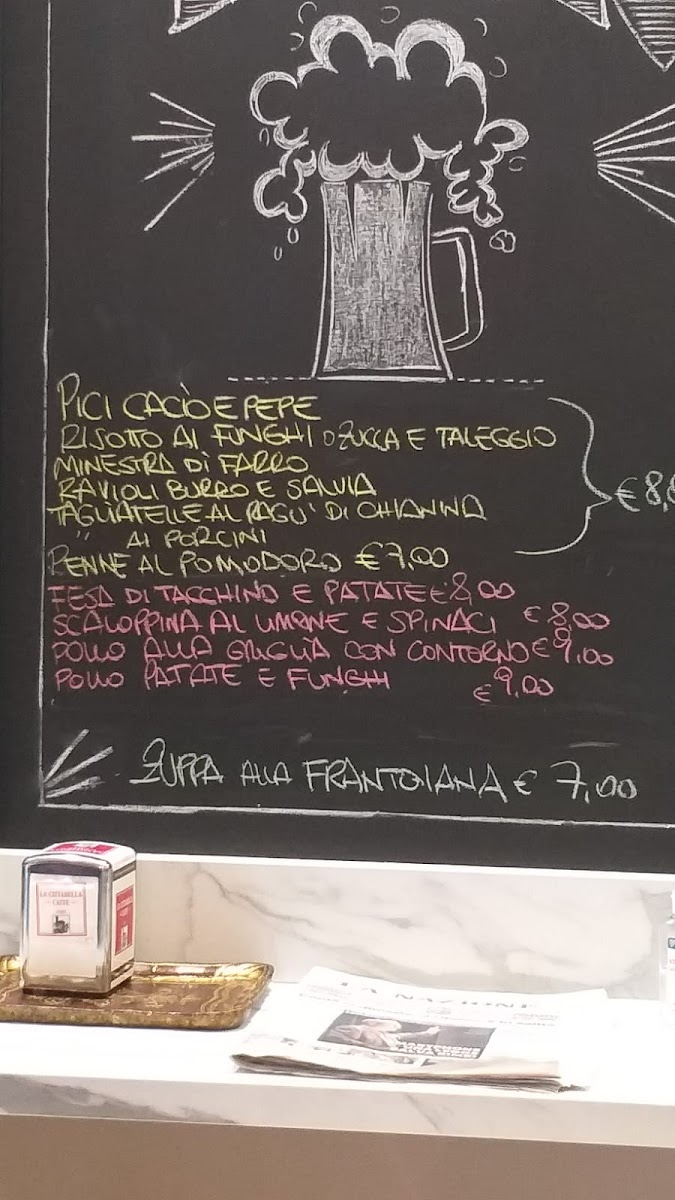 PICI CACIO E PEPE
RISOTTO AI FUNGHI O ZUCCA E TALEGGIO
MINESTRA DI FARRO
RAVIOLI BURRO E SALVIA
TAGLIATELLE AL RAGU' DI CHIANINA
" AI PORCINI
€ 8,
PENNE AL POMODORO € 7,00
FESA DI TACCHINO E PATATE € 8,00
SCALOPPINA AL LIMONE E SPINACI € 8,00
POLLO ALLA GRIGLIA CON CONTORNO € 9,00
POLLO PATATE E FUNGHI € 9,00
ZUPPA ALLA FRANTOIANA € 7,00
LA CITTADELLA
CAFFE
LA NAZIONE